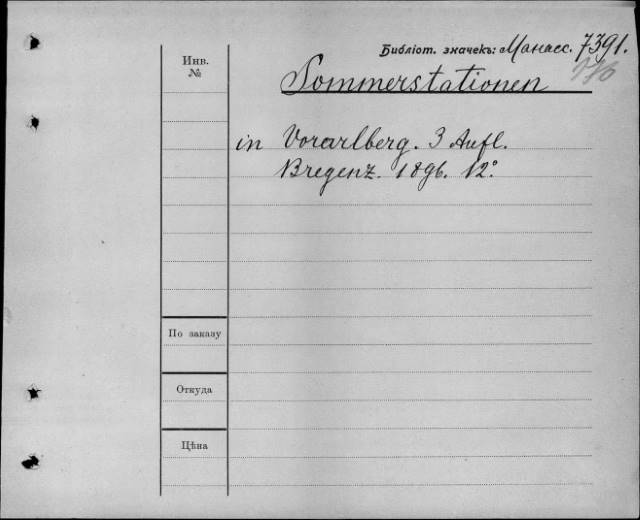 Библіот. значекъ: Манасс. 7391.
Инв.
№
Sommerstationen
in Vorarlberg. 3 Aufl.
Bregenz. 1896. 12°.
По заказу
Откуда
Цѣна